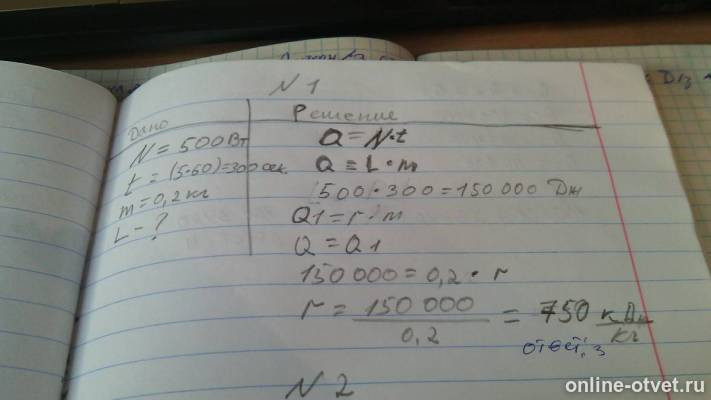 N 1
Дано
N = 500 Вт
t = (5·60) = 300 сек.
m = 0,2 кг
L - ?
Решение
Q = N·t
Q = L·m
500·300 = 150 000 Дж
Q1 = r·m
Q = Q1
150 000 = 0,2 · r
r = 150 000 / 0,2 = 750 кДж/кг
ответ: 3
N 2
online-otvet.ru